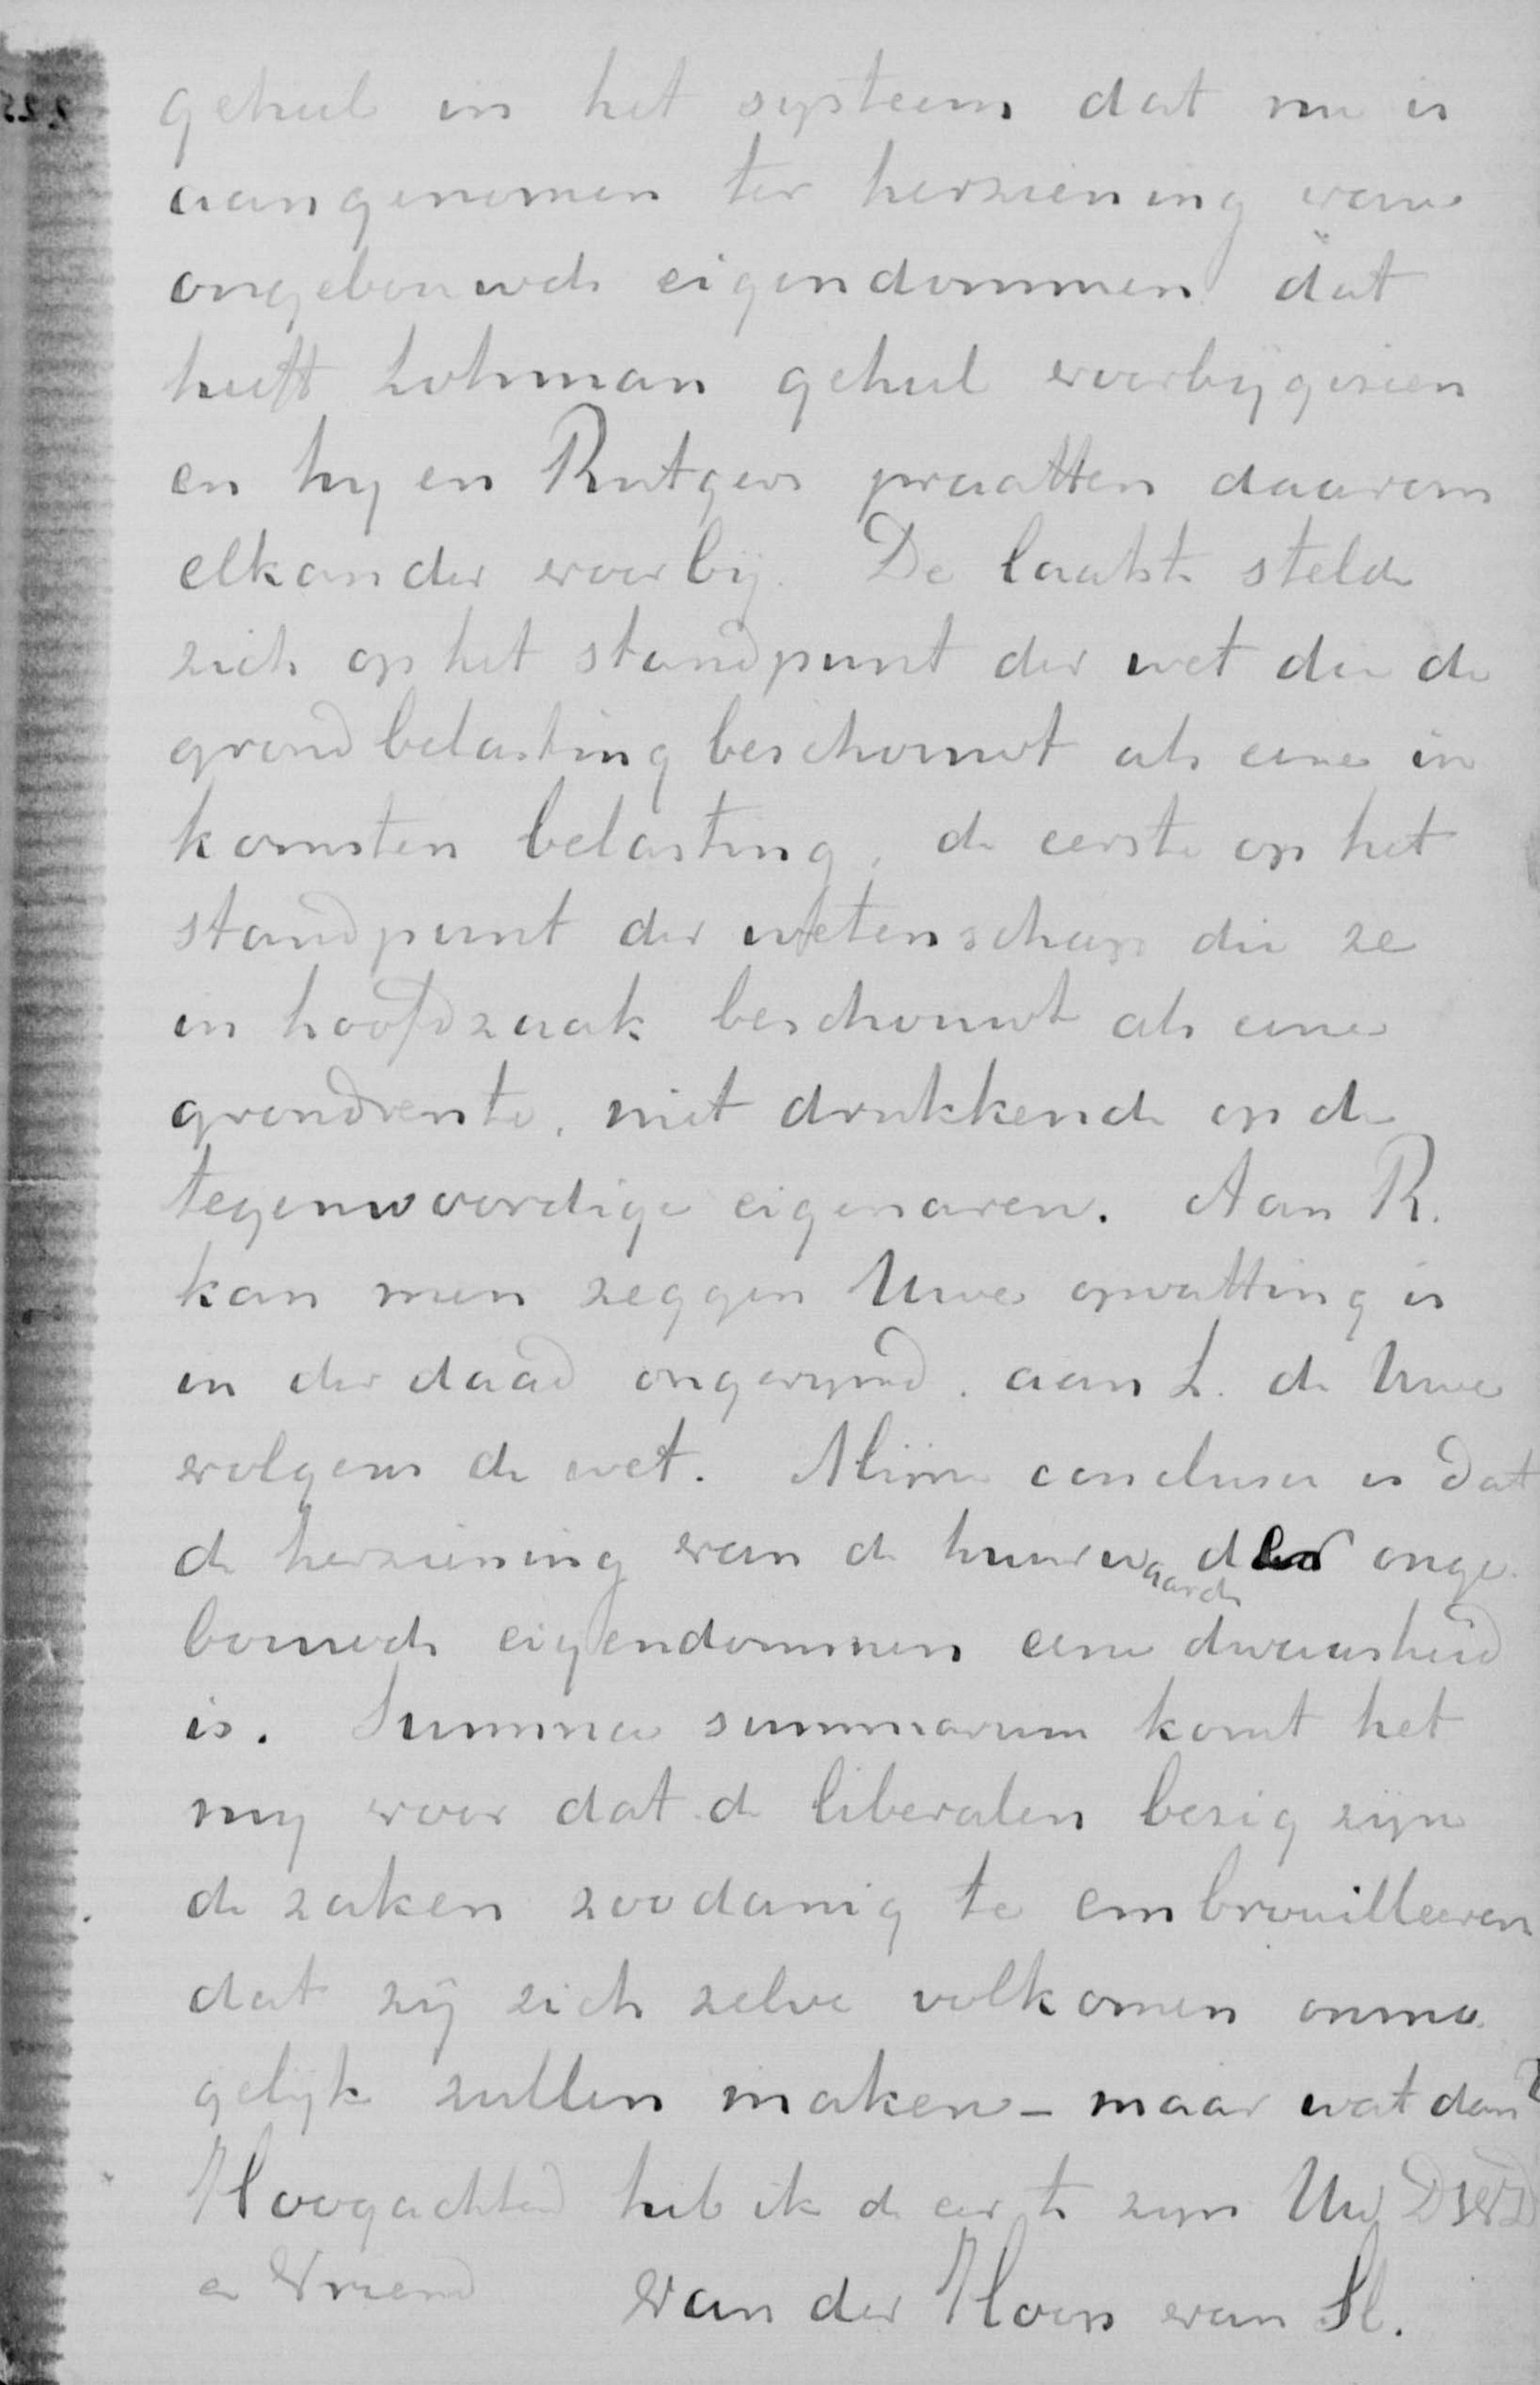 geheel in het systeem dat nu is
aangenomen ter herziening van
ongebouwde eigendommen dat
heeft Lohman geheel voorbijgezien
en hy en Rutgers praatten daarom
elkander voorbij. De laatste stelde
zich op het standpunt der wet die de
grondbelasting beschouwt als eene in
komsten belasting, de eerste op het
standpunt der wetenschap die ze
in hoofdzaak beschouwt als eene
grondrente, niet drukkende op de
tegenwoordige eigenaren. Aan R.
kan men zeggen Uwe opvatting is
in der daad ongerymd. aan L. de Uwe
volgens de wet. Mijne conclusie is dat
de herziening van de huurwaarde der onge
bouwde eigendommen eene dwaasheid
is. Summa summarum komt het
my voor dat de liberalen bezig zijn
de zaken zoodanig te embrouilleeren
dat zij zich zelve volkomen onmo
gelijk zullen maken - maar wat dan?
Hoogachtend heb ik de eer te zijn Uw DWD
en Vriend van der Hoop van Sl.